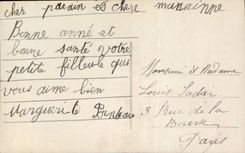 cher parain et chere maraine
Bonne anné et
bonne santé votre
petite filleule qui
vous aime bien
Marguerite
Monsieur et Madame
Louis
8 Rue de la
Bourse
Paris